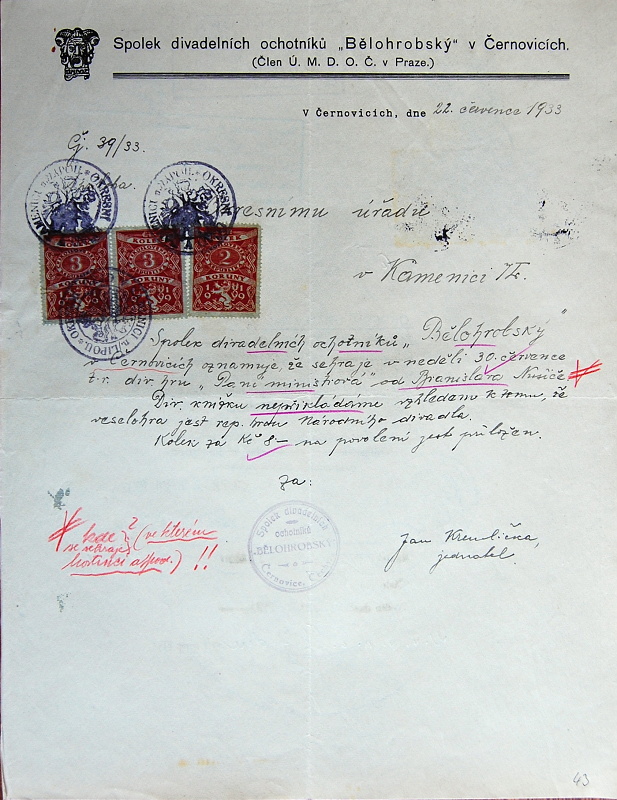 Spolek divadelních ochotníků „Bělohrobský“ v Černovicích.
(Člen Ú. M. D. O. Č. v Praze.)
V Černovicích, dne 22. července 1933
Čj. 39/33.
okresnímu úřadu
v Kamenici n/L.
3 3 2
KORUNY KORUNY KORUNY
Spolek divadelních ochotníků „Bělohrobský“
v Černovicích oznamuje, že sehraje v neděli 30. července
t.r. div. hru „Paní ministrová“ od Branislava Nušiče
Div. knížku nepřikládáme vzhledem k tomu, že
veselohra jest rep. hrou Národního divadla.
Kolek za Kč 8.- na povolení jest přiložen.
za:
Spolek divadelních
ochotníků
„BĚLOHROBSKÝ“
Černovice,
Jan
jednatel.
kde? (ve kterém
se sehraje
hostinci a pod.) !!
43